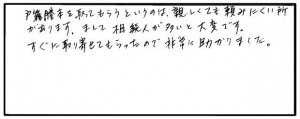 戸籍謄本を取ってもらうというのは、親しくても頼みにくい所
があります。まして相続人が多いと大変です。
すぐに取り寄せてもらったので非常に助かりました。